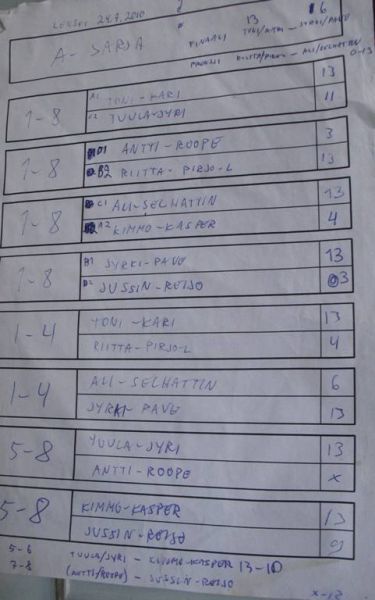 24.7.2010
A-SARJA
FINAALI 13 TONI/KARI - JYRKI/PAVE 6
PRONSSI RIITTA/PIRJO-L - ALI/SELHATTIN 0-13
1-8
A1 TONI-KARI 13
TUULA-JYRI 11
1-8
D1 ANTTI-ROOPE 3
B2 RIITTA-PIRJO-L 13
1-8
C1 ALI-SELHATTIN 13
A2 KIMMO-KASPER 4
1-8
B1 JYRKI-PAVE 13
JUSSIN-REIJO 3
1-4
TONI-KARI 13
RIITTA-PIRJO-L 4
1-4
ALI-SELHATTIN 6
JYRKI-PAVE 13
5-8
TUULA-JYRI 13
ANTTI-ROOPE x
5-8
KIMMO-KASPER 13
JUSSIN-REIJO 9
5-6 TUULA/JYRI - KIMMO-KASPER 13-10
7-8 (ANTTI/ROOPE) - JUSSIN-REIJO x-13